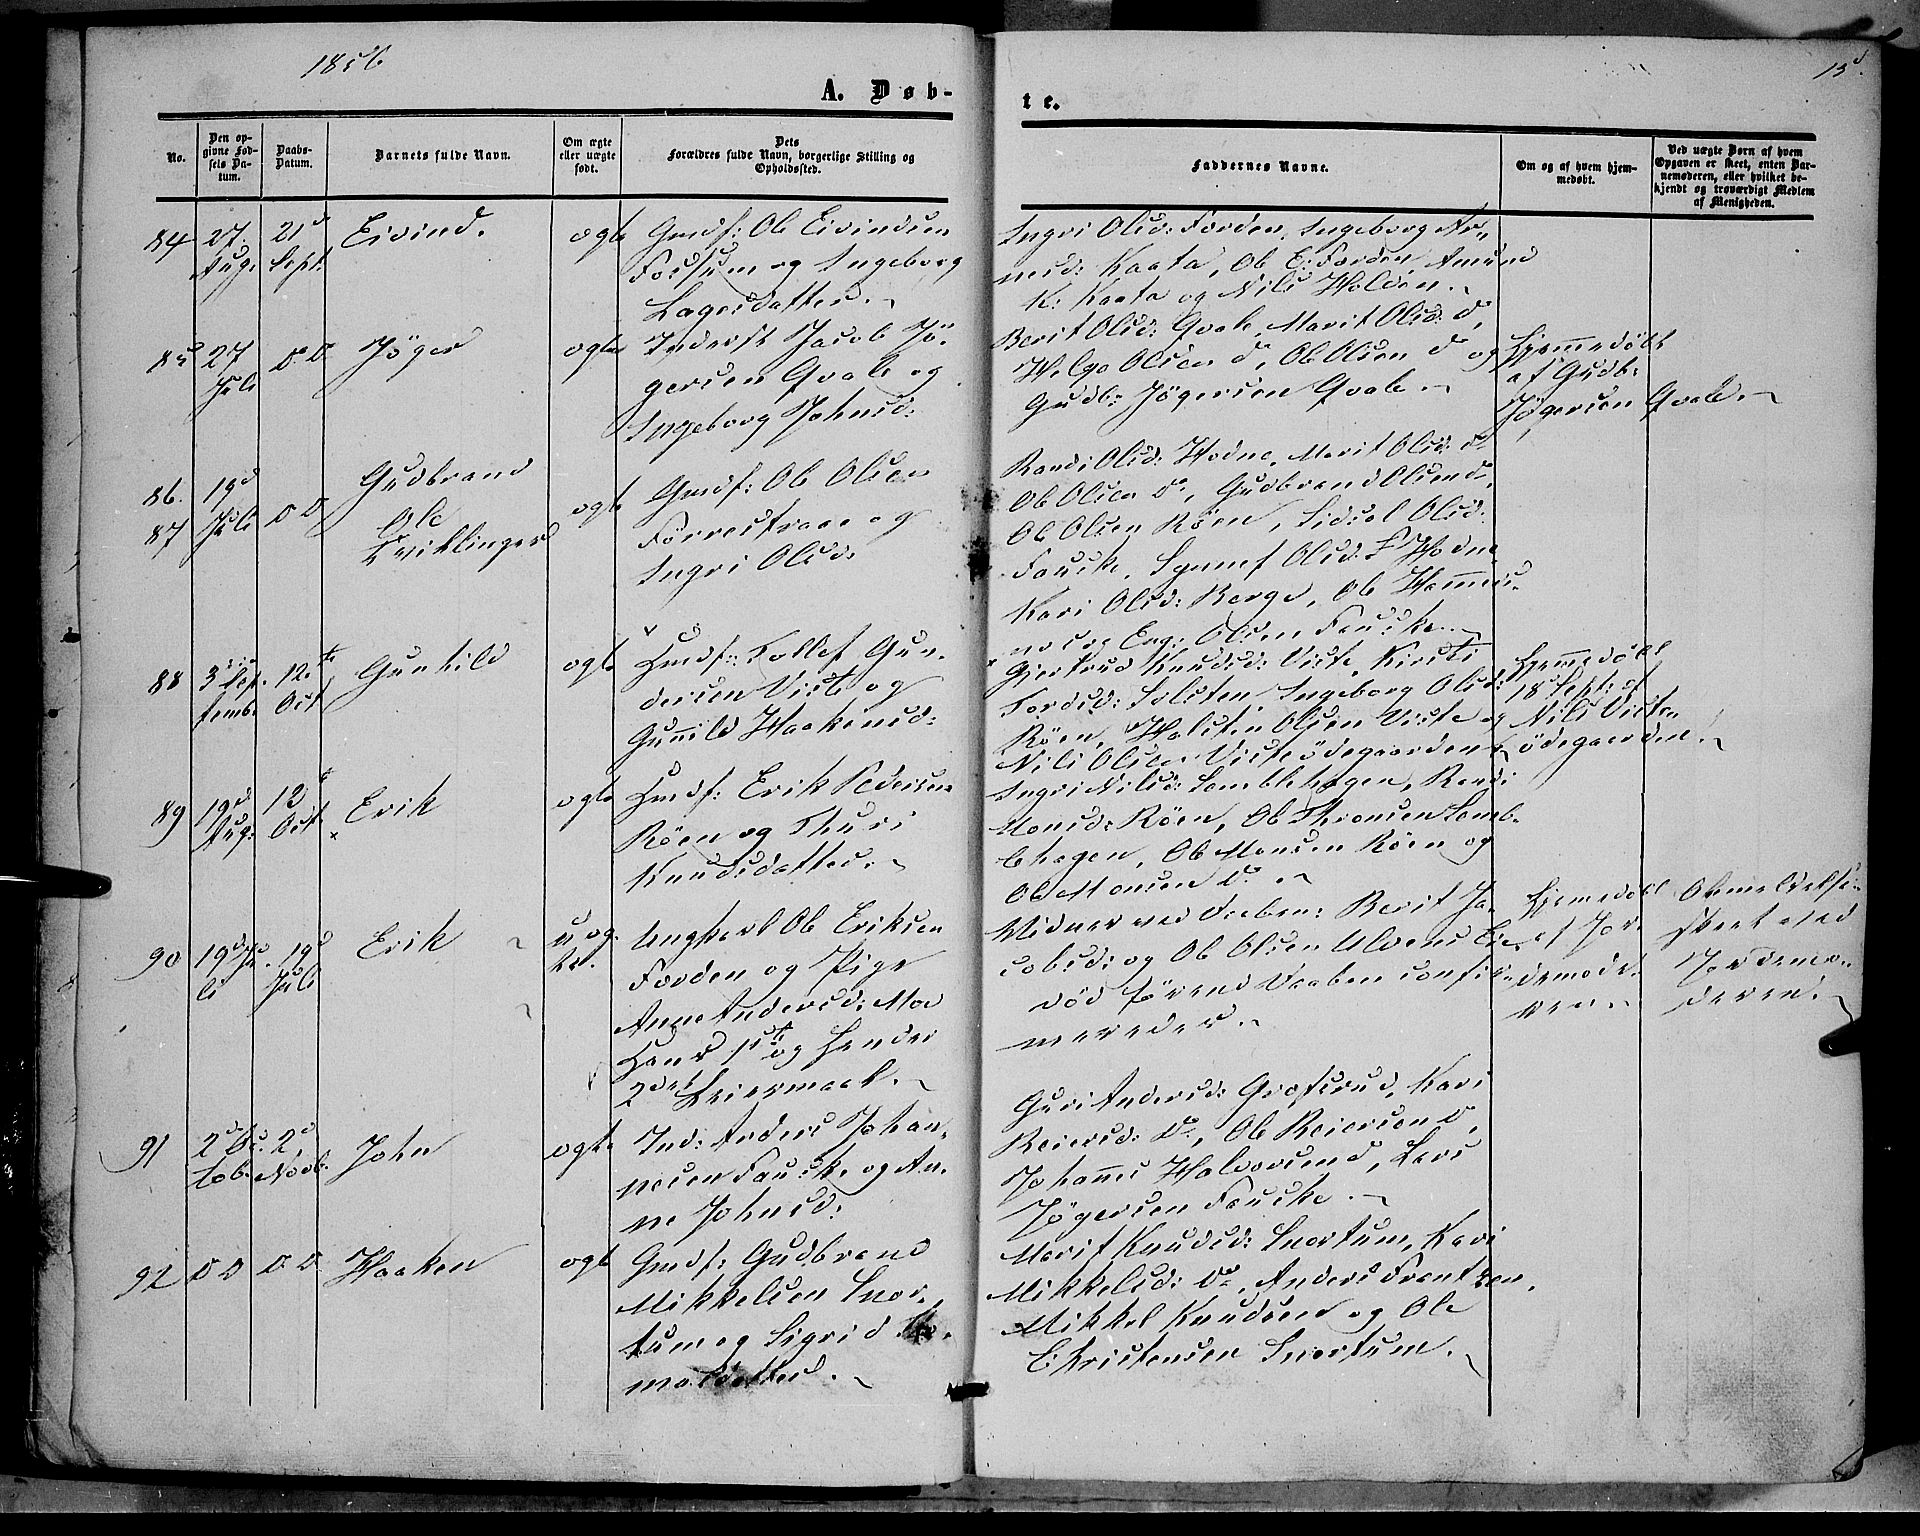 1856
15
A. Døb-
te.
No.
Den op-
givne Fød-
sels Da-
tum.
Daabs-
Datum.
Barnets fulde Navn.
Om ægte
eller uægte
født.
Dets
Forældres fulde Navn, borgerlige Stilling og
Opholdssted.
Faddernes Navne.
Om og af hvem hjem-
medøbt.
Ved uægte Børn af hvem
Opgaven er skeet, enten Bar-
nemoderen, eller hvilket be-
kjendt og troværdigt Medlem
af Menigheden.
84
27.
Aug.
21d
Sept:
Eivind.
ægte
Gmdf: Ole Eivindsen
Fossum og Ingeborg
Lagesdatter.
Ingri Olsd: Forden, Ingeborg Ar-
nesd: Kaata, Ole E: Forden, Amund
K: Kaata og Nils Holden.
85
27
Juli
do
Jöger
ægte
Inderst Jacob Jö-
gersen Qvale og
Ingeborg Johnsd:
Berit Olsd: Qvale, Marit Olsd: do,
Helge Olsen do, Ole Olsen do og
Gudb: Jögersen Qvale.
Hjemmedöbt
af Gudb:
Jögersen Qvale.
86.
87
19d
Juli
do
Gudbrand
Ole
Tvillinger
ægte
Gmdf: Ole Olsen
og
Ingri Olsd:
Randi Olsd: Hodne, Marit Olsd: do
Ole Olsen do, Gudbrand Olsen do,
Ole Olsen Röen, Sidsel Olsd:
Fauske, Synnef Olsd: Hodne
Kari Olsd: Berge, Ole
Eng: Olsen Fauske.
88
3die Sep-
temb.
12te
Oct
Gunhild
ægte
Hmdf: Tollef Gun-
dersen Viste og
Gunnild Haakensd:
Gjertrud Knudsd: Viste, Kirsti
Tordsd: Ingeborg Olsd:
Röen, Halstein Olsen Viste og
Nils Olsen Visteödegaarden
Hjemmedöbt
18 Sept: af
Nils Viste-
ödegaarden.
89
19d
Aug:
12t
Oct.
Erik
ægte
Hmdf: Erik Pedersen
Röen og Thuri
Knudsdatter.
Ingri Nilsd: Lamblehagen, Randi
Monsd: Röen, Ole Thronsen Lamb-
lehagen, Ole Monsen Röen og
Ole Monsen do.
90
19d Ju-
li
19d
Juli
Erik
uæg-
te.
Ungkarl Ole Eriksen
Forden og Pige
Anne Andersd: Moe
Hans 1ste og Hendes
2det Leiermaal.
Vidner ved Daaben: Berit Ja-
cobsd: og Ole Olsen Ulvens Eie.
död förend Daaben confir-
meredes.
Hjemmedöbt
af Jor-
demode-
ren.
Anmeldelse
skeet ved
Jordemo-
deren.
91
2d Oc-
tob.
2d
Novb.
John
ægte
Ind: Anders Johan-
nesen Fauske og An-
ne Johnsd:
Guri Andersd: Grofsrud, Kari
Reiersd: do, Ole Reiersen do,
Johannes Halvorsen do, Lars
Jögersen Fauske.
92
do
do
Haaken
ægte
Gmdf: Gudbrand
Mikkelsen Snor-
tum og Sigrid
Marit Knudsd: Snortum, Kari
Mikkelsd: do, Anders Frantzen,
Mikkel Knudsen og Ole
Christensen Snortum.